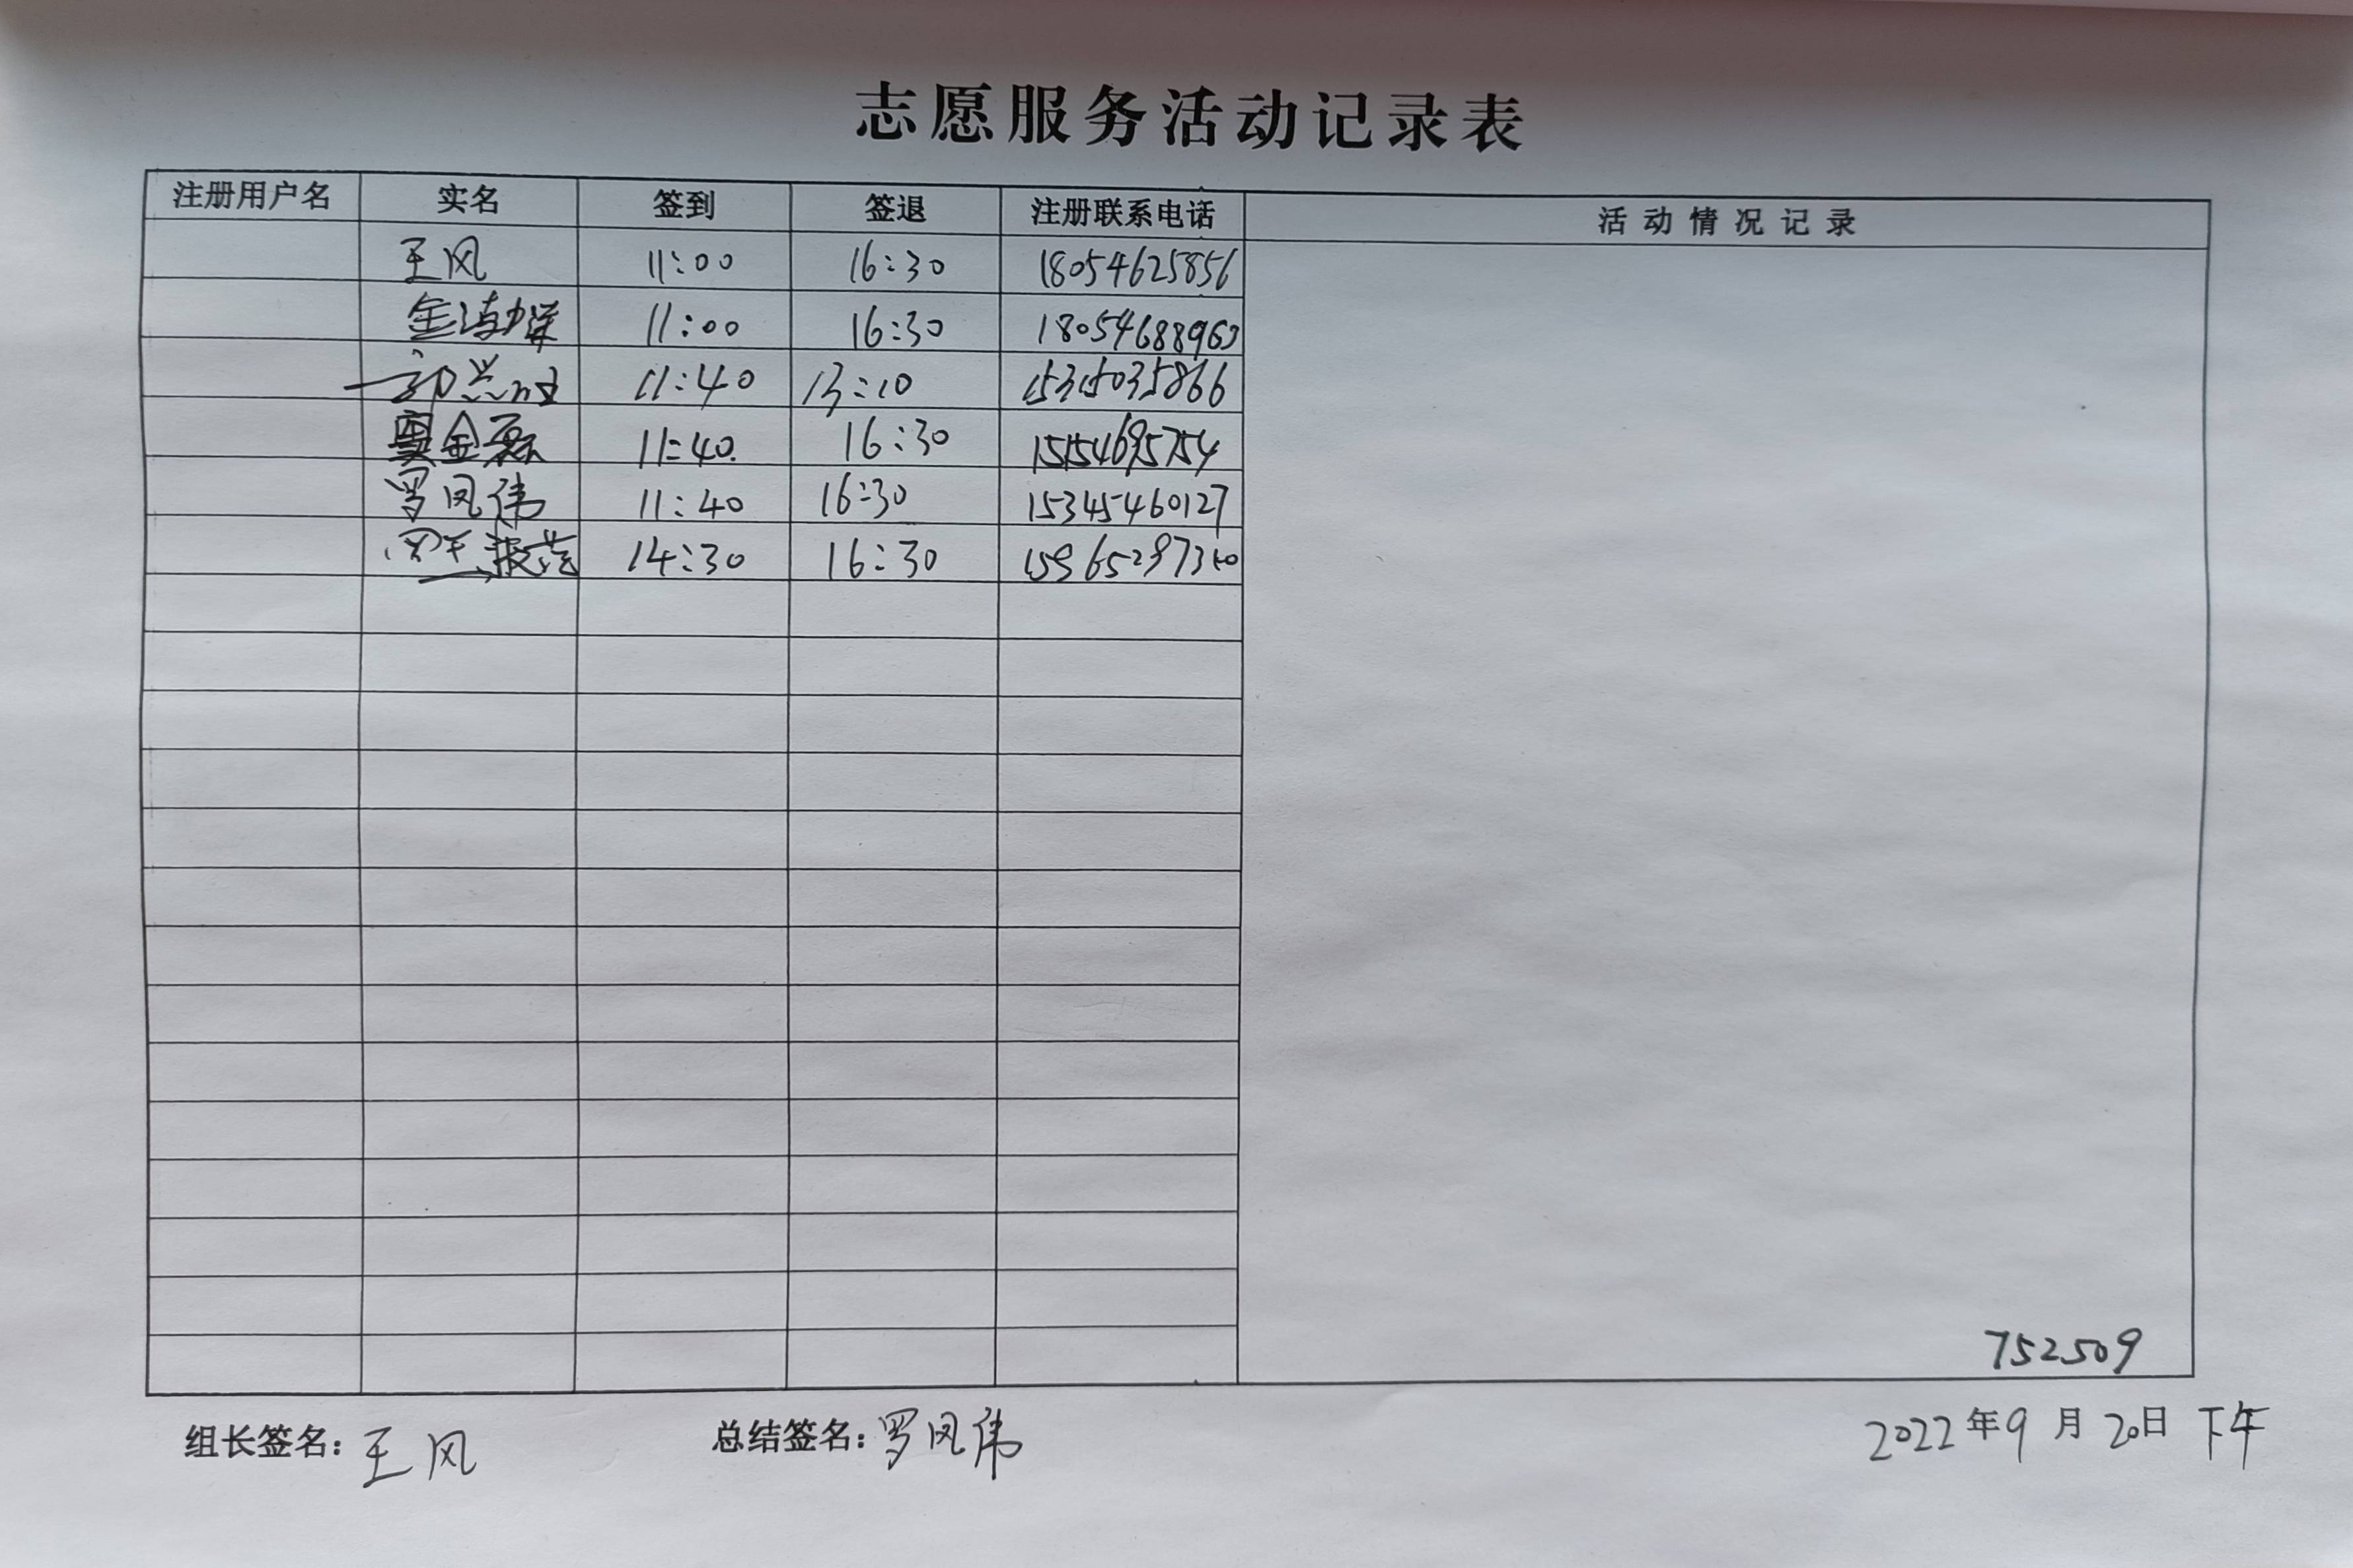 志愿服务活动记录表
注册用户名 实名 签到 签退 注册联系电话 活动情况记录
王风 11:00 16:30 18054625856
11:00 16:30 18054688963
11:40 13:10 15315035866
11:40. 16:30 15154695754
罗凤伟 11:40 16:30 15345460127
14:30 16:30
752509
组长签名: 王风 总结签名: 罗凤伟 2022年9月20日 下午